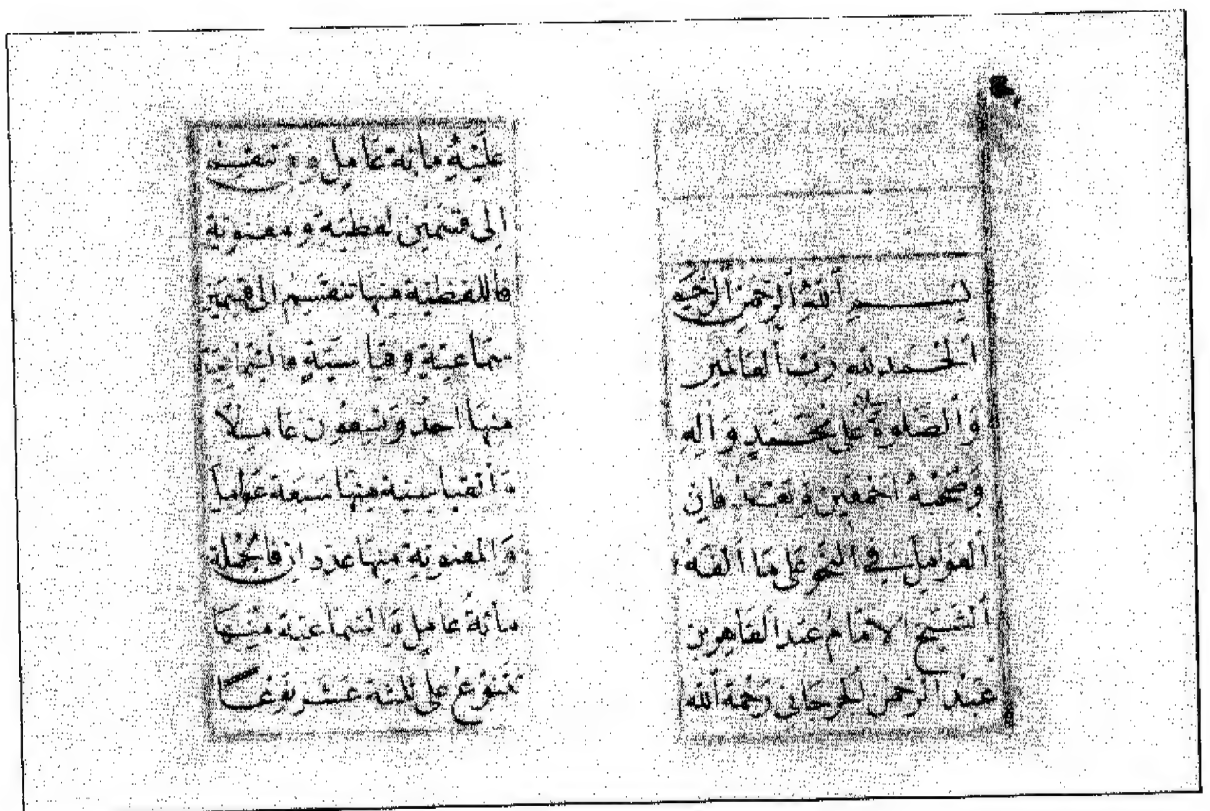 بِسْمِ ٱللَّهِ ٱلرَّحْمٰنِ ٱلرَّحِيمِ
ٱلْحَمْدُ لِلَّهِ رَبِّ ٱلْعَالَمِين
وَٱلصَّلَوةُ عَلَى مُحَمَّدٍ وَآلِهِ
وَصَحْبِهِ أَجْمَعِينَ وَبَعْدُ فَإِنَّ
ٱلْعَوَامِلَ فِي النَّحْوِ عَلَى مَا أَلَّفَهُ
ٱلشَّيْخُ الْإِمَامُ عَبْدُ الْقَاهِرِ بن
عَبْدُ الرَّحْمٰن الْجُرْجَانِي رَحْمَةُ ٱللَّه
عَلَيْهِ مِائَةُ عَامِلٍ وَ تنقسم
إِلَى قِسْمَيْنِ لَفْظِيَّة وَمَعْنَوِيَّة
فَاللَّفْظِيَّة مِنْهَا تَنْقَسِمُ إِلَى قِسْمَيْن
سَمَاعِيَّة وَقِيَاسِيَّةٍ فَالسَّمَاعِيَّة
مِنْهَا أَحَدٌ وَتِسْعُونَ عَامِلًا
وَٱلْقِيَاسِيَّة مِنْهَا سَبْعَة عَوَامِل
وَالْمَعْنَوِيَّة مِنْهَا عَدَدَانِ فَالْجُمْلَة
مِائَةُ عَامِلٍ فَالسَّمَاعِيَّة مِنْهَا
تَتَنَوَّعُ عَلَى ثَلٰثَة عَشَر نَوْعًا